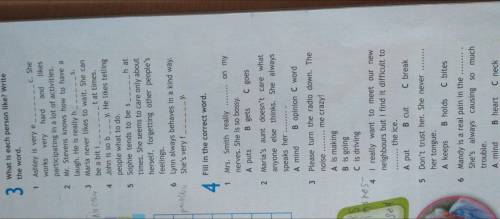 3 What is each person like? Write
the word.
1 Ashley is very e _ _ _ _ _ _ _ c. She
works very hard and likes
participating in a lot of activities.
2 Mr. Stevens knows how to have a
laugh. He is really h _ _ _ _ _ _ s.
3 Maria never likes to wait. She can
be a bit i _ _ _ _ _ _ _ t at times.
4 John is so b _ _ _ y. He likes telling
people what to do.
5 Sophie tends to be s _ _ _ _ _ h at
times. She seems to care only about
herself, forgetting other people's
feelings.
6 Lynn always behaves in a kind way.
She's very f _ _ _ _ _ _ y.
4 Fill in the correct word.
1 Mrs. Smith really ......... on my
nerves. She is so bossy.
A puts B gets C goes
2 Maria's aunt doesn't care what
anyone else thinks. She always
speaks her .........
A mind B opinion C word
3 Please turn the radio down. The
noise ......... me crazy!
A is making
B is going
C is driving
4 I really want to meet our new
neighbours but I find it difficult to
......... the ice.
A put B cut C break
5 Don't trust her. She never .........
her tongue.
A keeps B holds C bites
6 Mandy is a real pain in the .........
She's always causing so much
trouble.
A mind B heart C neck